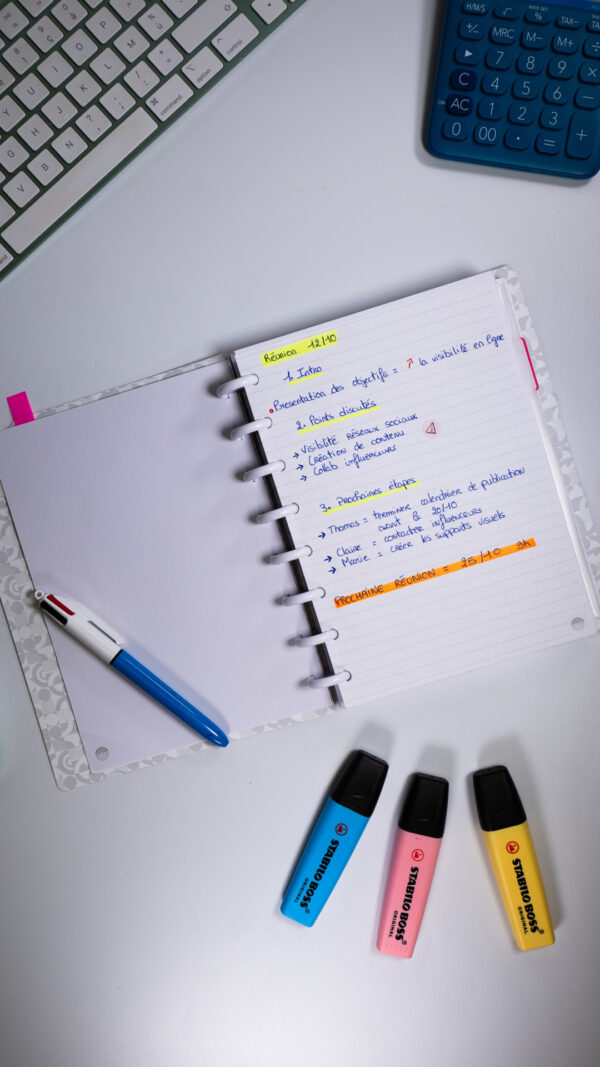 H/M/S
√
RATE SET
%
TAX-
+/-
MRC
M-
M+
÷
▶
7
8
9
×
C
4
5
6
−
ON
AC
1
2
3
+
0
00
·
=
O
P
^
$
J
K
L
M
ù
G
H
V
B
N
?
,
;
:
/
+
=
⌘
command
⌥
option
^
control
Réunion 12/10
1. Intro
Présentation des objectifs = ↗ la visibilité en ligne
2. Points discutés
→ Visibilité réseaux sociaux
→ Création de contenu
→ Collab influenceurs
3. Prochaines étapes
→ Thomas = terminer calendrier de publication
avant le 20/10
→ Claire = contacter influenceurs
→ Marie = créer les supports visuels
PROCHAINE RÉUNION = 25/10 9h
STABILO BOSS
ORIGINAL
STABILO BOSS
ORIGINAL
STABILO BOSS
ORIGINAL